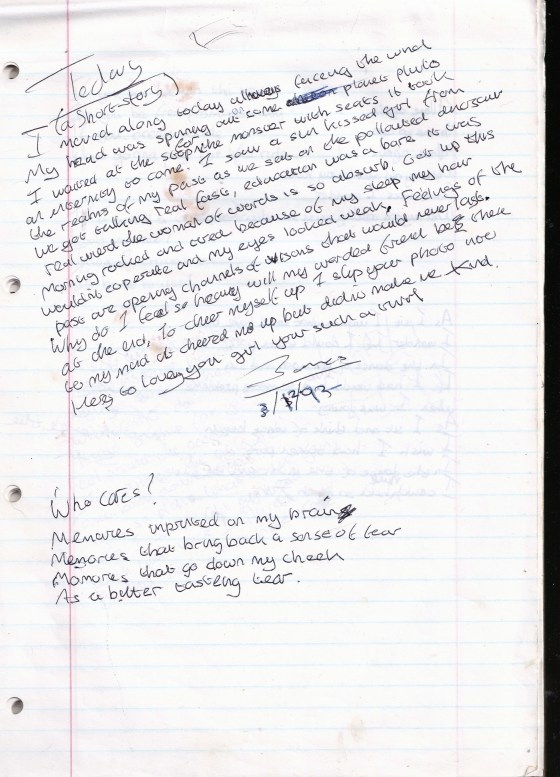 Today
(a Short story)
I moved along today always facing the wind
My head was spinning out some planet pluto
I waited at the stop for the monster with seats it took
an enternity to come. I saw a sun kissed girl from
the realms of my past as we seat on the polluted dinosaur
we got talking real fast, education was a bore it was
real weird the woman of words is so absurb. Got up this
morning rocked and ored because of my sleep my hair
wouldn't coperate and my eyes looked weak. Feelings of the
past are opening channels of visons that would never last.
Why do I feel so heavy will my worded friend be there
at the end, To cheer myself up I slip your photo now
to my mind it cheered me up but didn't make me kind.
Here to love you girl your such a
3/12/93
Who cares?
Memories inprinted on my brain
Memories that bring back a sense of fear
Momories that go down my cheek
As a bitter tasteing tear.